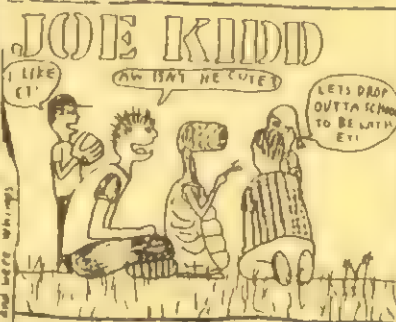 JOE KIDD
I LIKE
ET!
AW ISNT HE CUTE?
LETS DROP
OUTTA SCHOOL
TO BE WITH
ET!
and were whimps